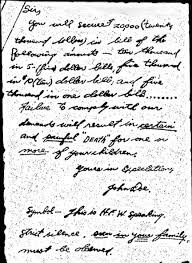 Sir,
You will secure 20000 (twenty
thousand dollars) in bills of the
following amounts — ten thousand
in 5-five dollar bills, five thousand
in $10 (ten) dollar bills, and five
thousand in one dollar bills......
Failure to comply with our
demands will result in certain
and painful "DEATH" for one or
more of your children.
Yours in Expectation,
John Doe.
Symbol — This is H.P.W Speaking.
Strict silence, even in your family,
must be observed.